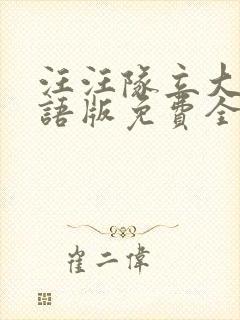 汪汪隊立大
語版免費全
崔二偉